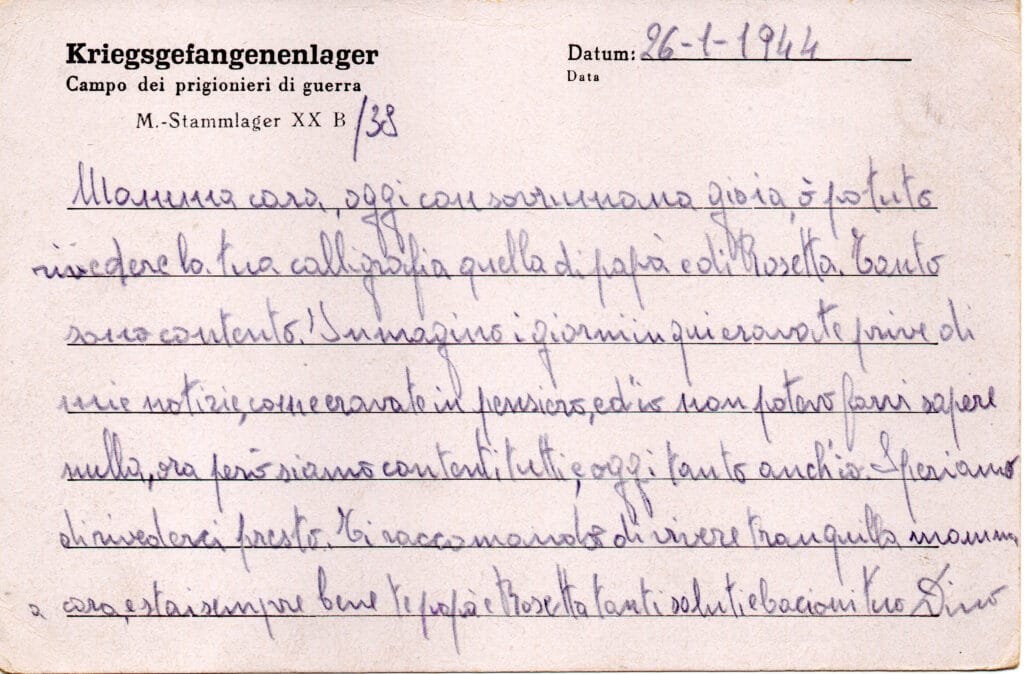 Kriegsgefangenenlager
Campo dei prigionieri di guerra
M.-Stammlager XX B /38
Datum: 26-1-1944
Data
Mamma cara, oggi con sovrumana gioia, ò potuto
rivedere la tua calligrafia quella di papà e di Rosetta. Tanto
sono contento. Immagino i giorni in qui eravate prive di
mie notizie, come eravate in pensiero, ed io non potevo farvi sapere
nulla, ora però siamo contenti tutti, e oggi tanto anch'io. Speriamo
di rivederci presto. Ti raccomando di vivere tranquilla mamm
a cara, e stai sempre bene te papà e Rosetta tanti saluti e bacioni tuo Dino